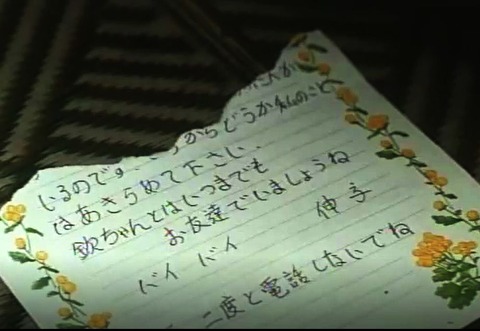 いるのです からどうか私のこと
はあきらめて下さい、
欽ちゃんとはいつまでも
お友達でいましょうね
バイ バイ
伸子
二度と電話しないでね